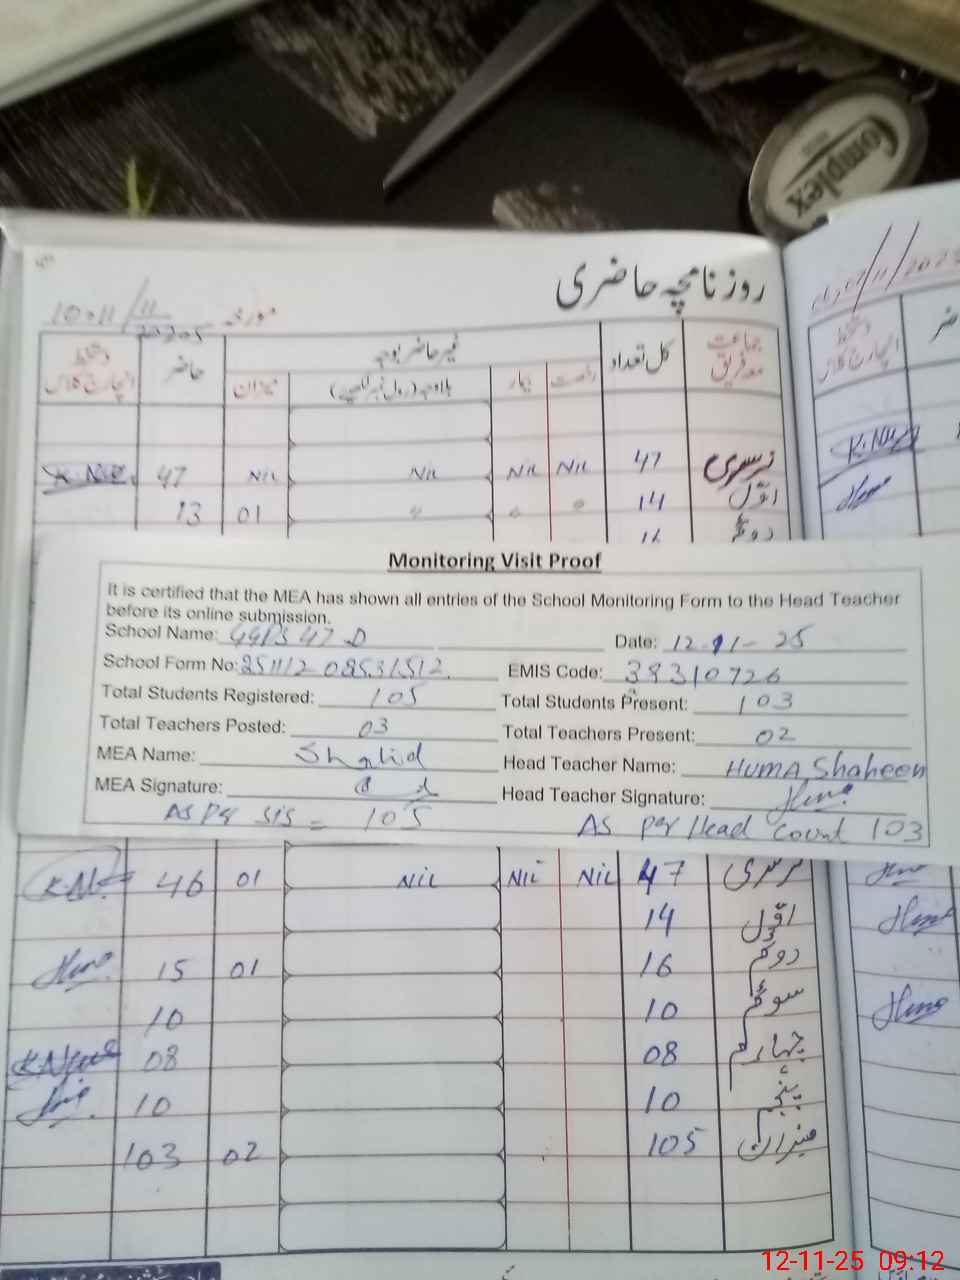 Complex
روزنامچہ حاضری
10-11/11
مورخہ
07/11/2025
جماعت معہ فریق
کل تعداد
غیر حاضر بوجہ
رخصت
بیمار
بلاوجہ (رول نمبر لکھیے)
میزان
حاضر
دستخط انچارج کلاس
نرسری 47 Nil Nil Nil Nil 47
اوّل 14 " " " 01 13
دوئم 16
Monitoring Visit Proof
It is certified that the MEA has shown all entries of the School Monitoring Form to the Head Teacher
before its online submission.
School Name: GGPS 47 D Date: 12-11-25
School Form No: EMIS Code: 38310726
Total Students Registered: 105 Total Students Present: 103
Total Teachers Posted: 03 Total Teachers Present: 02
MEA Name: Shahid Head Teacher Name: HUMA Shaheen
MEA Signature: Head Teacher Signature: Huma
As Per SIS = 105 AS per Head Count 103
نرسری 47 Nil Nil Nil 01 46
اوّل 14
دوئم 16 01 15
سوئم 10 10
چہارم 08 08
پنجم 10 10
میزان 105 02 103
12-11-25 09:12